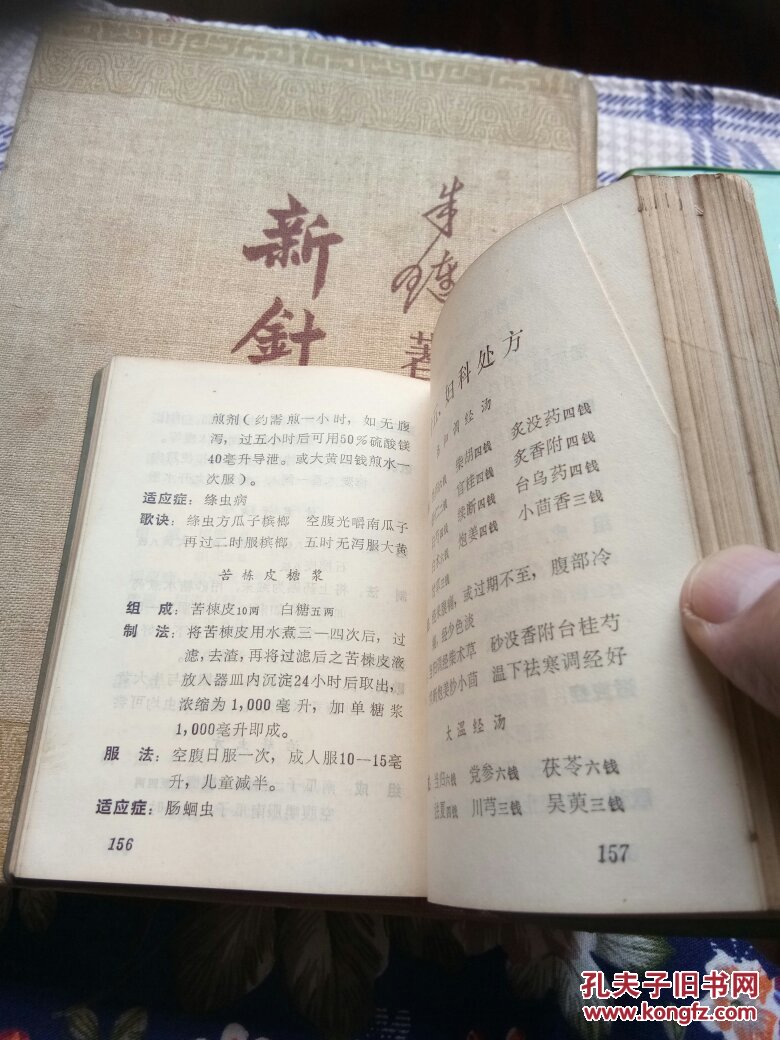 新針
朱璉
著
煎剂（约需煎一小时，如无腹
泻，过五小时后可用50%硫酸镁
40毫升导泄。或大黄四钱煎水一
次服）。
适应症：绦虫病
歌诀：绦虫方瓜子槟榔　空腹先嚼南瓜子
再过二时服槟榔　五时无泻服大黄
苦楝皮糖浆
组成：苦楝皮10两　白糖五两
制法：将苦楝皮用水煮三一四次后，过
滤，去渣，再将过滤后之苦楝皮液
放入器皿内沉淀24小时后取出，
浓缩为1,000毫升，加单糖浆
1,000毫升即成。
服法：空腹日服一次，成人服10--15毫
升，儿童减半。
适应症：肠蛔虫
156
妇科处方
经汤
柴胡四钱　炙没药四钱
官桂四钱　炙香附四钱
续断四钱　台乌药四钱
炮姜四钱　小茴香三钱
或过期不至，腹部冷
经少色淡
柴木草　砂没香附台桂芍
小茴　温下祛寒调经好
大温经汤
当归六钱　党参六钱　茯苓六钱
法夏四钱　川芎三钱　吴萸三钱
157
孔夫子旧书网
www.kongfz.com